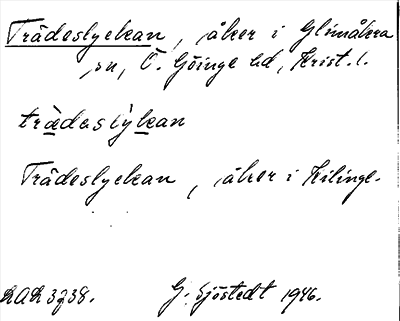 Trådeslyckan, åker i Glimåkra
sn, Ö. Göinge hd, Krist. l.
trådaslỳkan
Trådeslyckan, åker i Kilinge.
LAL 3738.
G. Sjöstedt 1946.